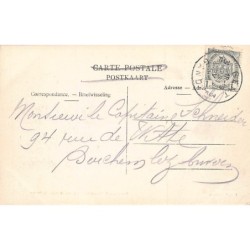 CARTE POSTALE
POSTKAART
Correspondance. — Briefwisseling
Adresse
Monsieur le Capitaine Schneider
94 rue de Witte
Berchem lez Anvers